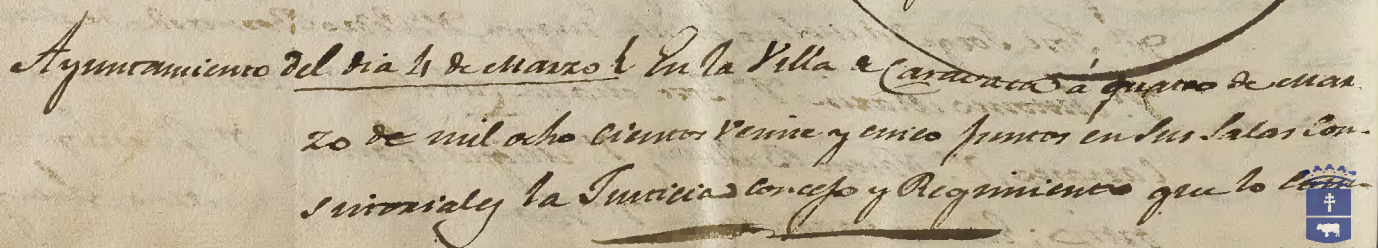 Ayuntamiento del dia 4 de Marzo En la Villa de Caravaca à quatro de Mar
zo de mil ocho cientos Veinte y cinco Juntos en sus Salas Con-
sistoriales la Justicia Concejo y Regimiento que lo